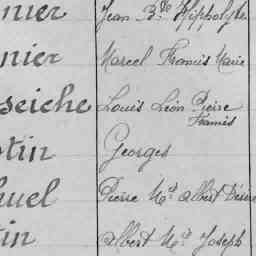 nier Jean Bte Hippolyte
nier Marcel Francis Marie
seiche Louis Léon Pierre
Francis
tin Georges
uel Pierre Mie Albert Désiré
in Albert Mie Joseph